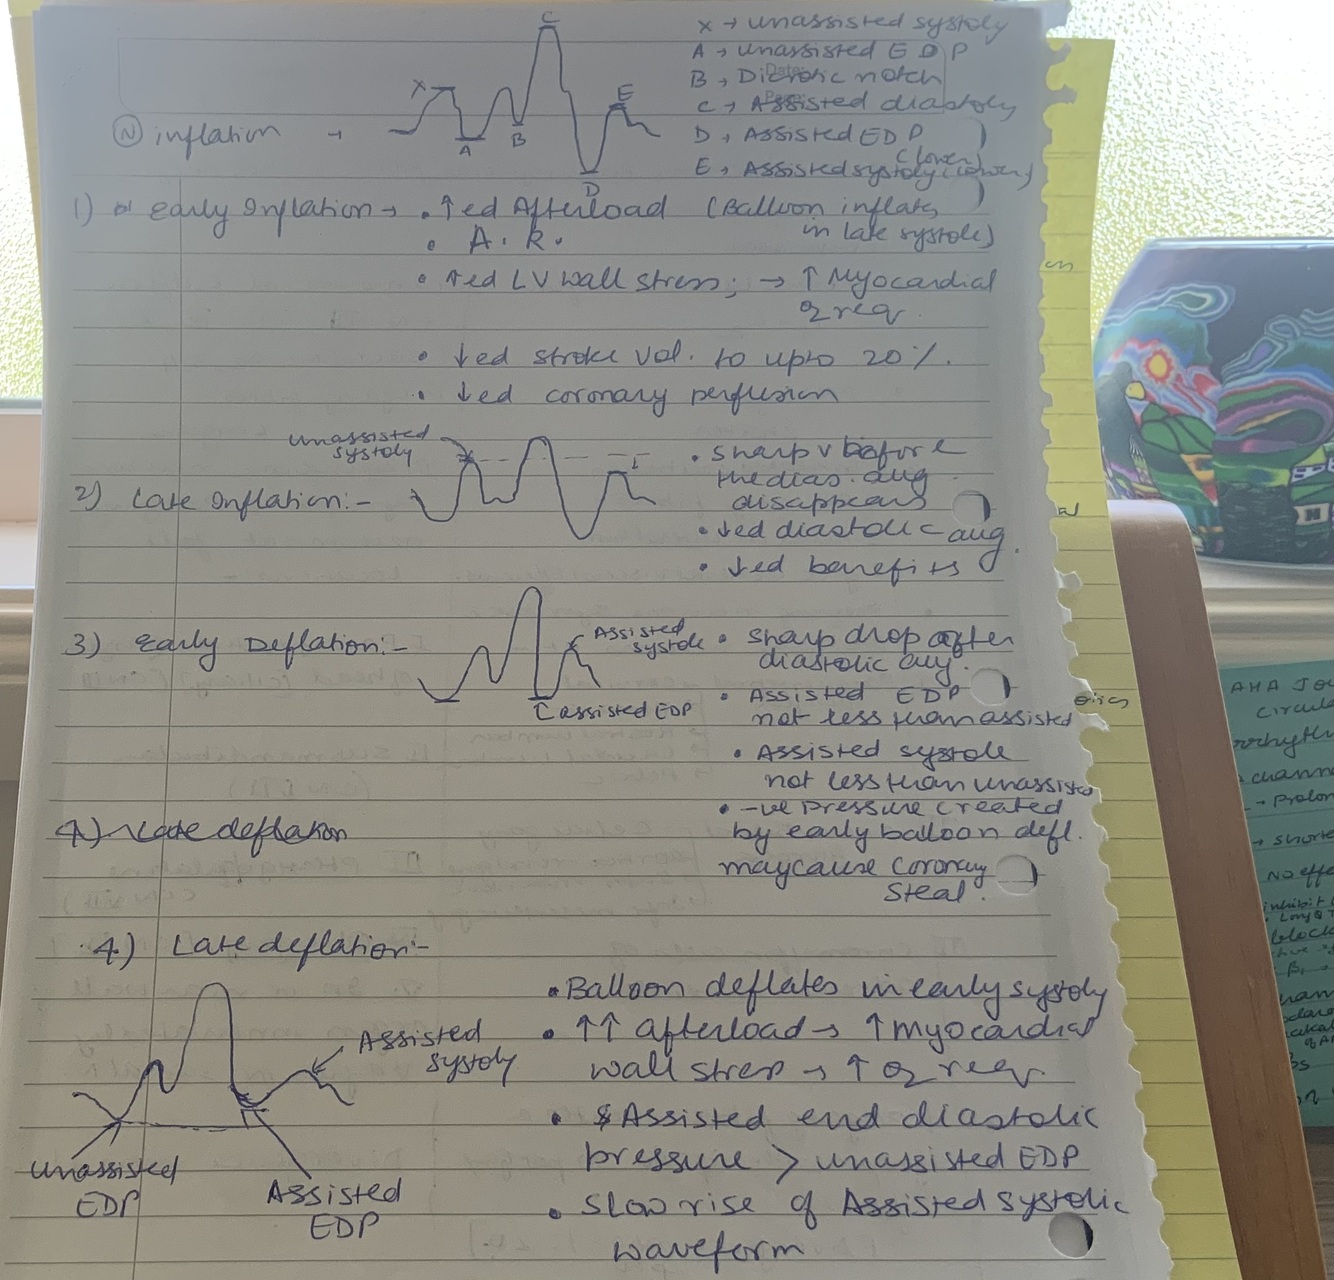 C
X → unassisted systoly
A → unassisted EDP
B → Dicrotic notch
C → Assisted diastoly
D → Assisted EDP (lower)
E → Assisted systoly (lower)
X
A
B
E
D
(N) inflation →
1) Early Inflation → • ↑ed Afterload (Balloon inflates
in late systole)
• A.R.
• ↑ed LV wall stress; → ↑ Myocardial
O2 req.
• ↓ed stroke vol. to upto 20%.
• ↓ed coronary perfusion
unassisted
systoly
2) Late Inflation:-
• sharp v before
the dias. aug
disappears
• ↓ed diastolic aug.
• ↓ed benefits
3) Early Deflation:-
Assisted
systole
assisted EDP
• sharp drop after
diastolic aug.
• Assisted EDP
not less than assisted
• Assisted systole
not less than unassisted
• -ve pressure created
by early balloon defl.
may cause coronary
steal.
4) Late deflation
4) Late deflation:-
Assisted
systoly
unassisted
EDP
Assisted
EDP
• Balloon deflates in early systoly
• ↑↑ afterload → ↑ myocardial
wall stress → ↑ O2 req.
• Assisted end diastolic
pressure > unassisted EDP
• slow rise of Assisted systolic
waveform
AHA JOU
Circula
channe
→ Prolon
→ shorte
No effe
inhibit
block